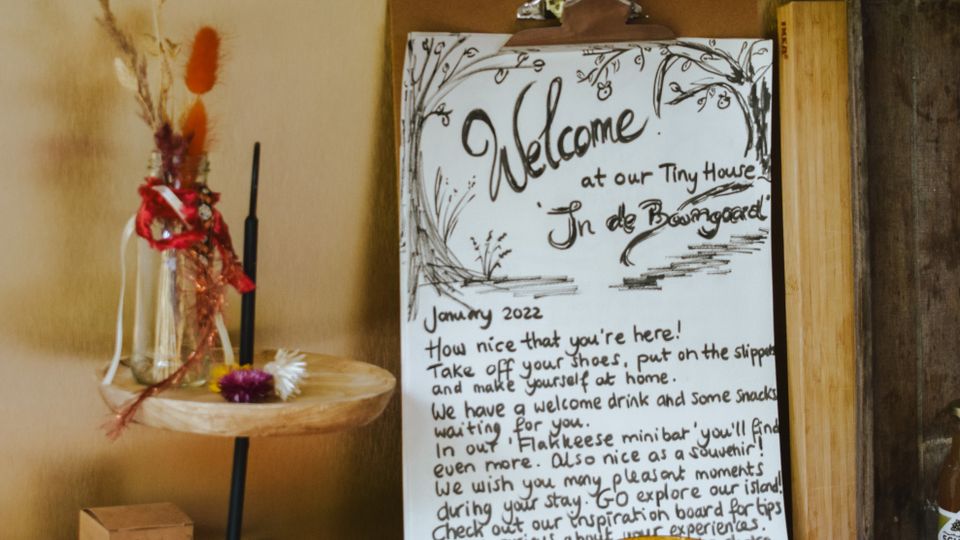 Welcome
at our Tiny House
'In de Boomgaard'
January 2022
How nice that you're here!
Take off your shoes, put on the slippers
and make yourself at home.
We have a welcome drink and some snacks
waiting for you.
In our 'Flakkeese minibar' you'll find
even more. Also nice as a souvenir!
We wish you many pleasant moments
during your stay. GO explore our island!
Check out our inspiration board for tips
about your experiences.